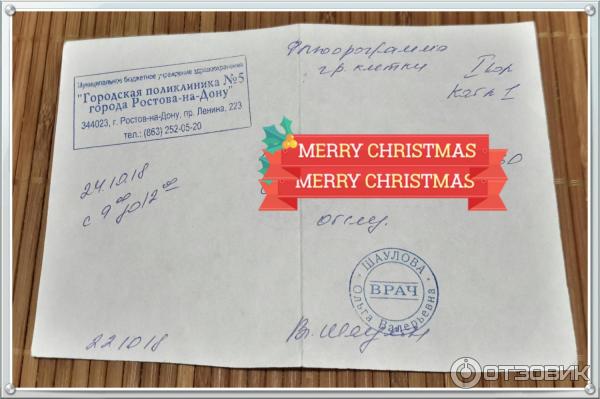 Муниципальное бюджетное учреждение здравоохранения
"Городская поликлиника №5
города Ростова-на-Дону"
344023, г. Ростов-на-Дону, пр. Ленина, 223
тел.: (863) 252-05-20
24.10.18
с 9 00 до 12 00
22.10.18
Флюорограмма
гр. клетки
I кор
Каб 1
MERRY CHRISTMAS
MERRY CHRISTMAS
обслу.
ШАУЛОВА
ВРАЧ
Ольга Валерьевна
Вр.
ОТЗОВИК